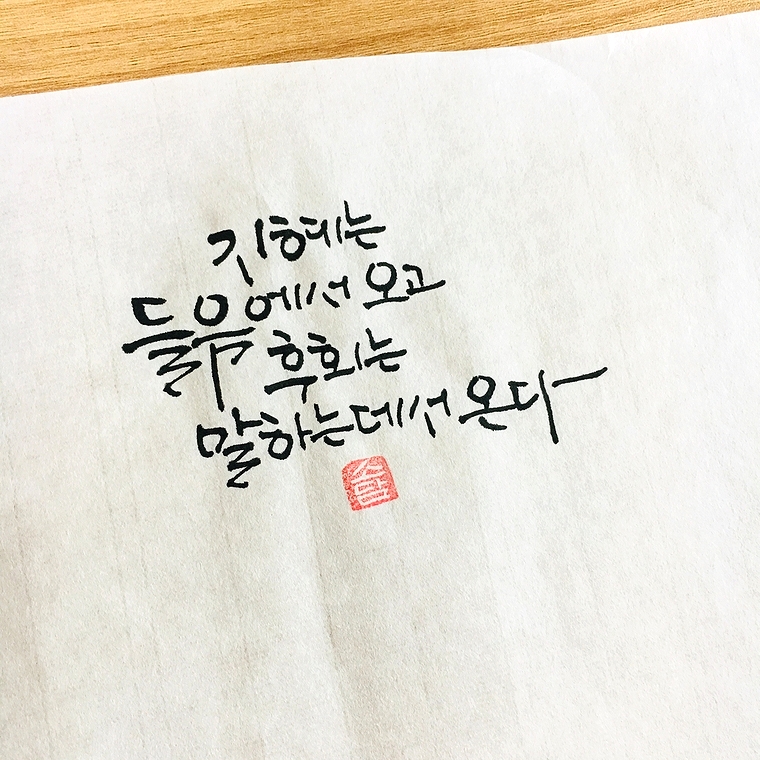 지혜는
들음에서 오고
후회는
말하는데서 온다